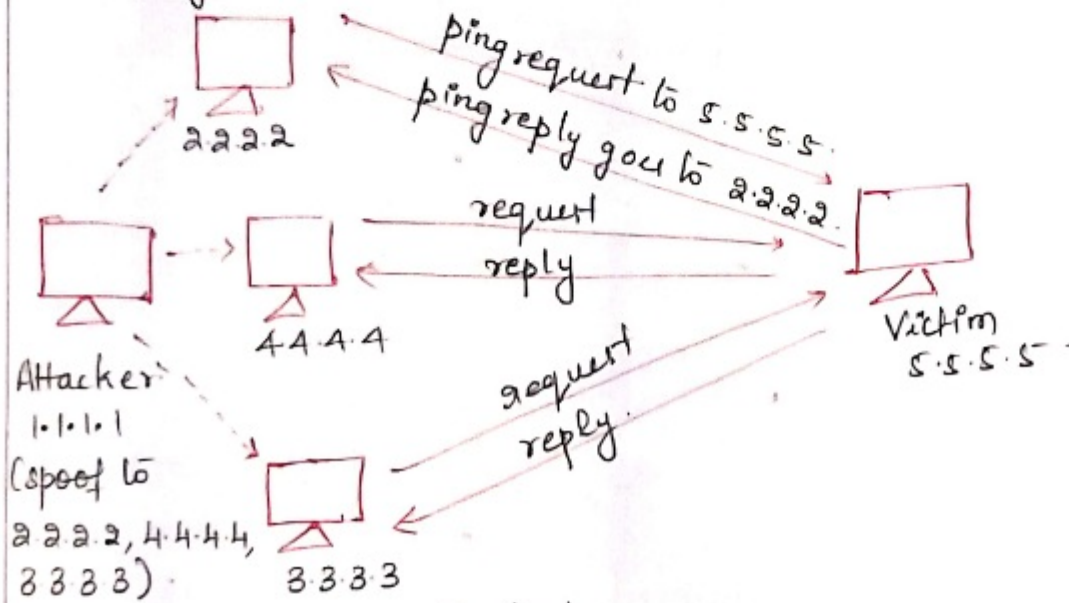 ping request to 5.5.5.5.
ping reply goes to 2.2.2.2.
2.2.2.2
request
reply
4.4.4.4
Victim
5.5.5.5
Attacker
1.1.1.1
(spoof to
2.2.2.2, 4.4.4.4,
3.3.3.3)
request
reply.
3.3.3.3